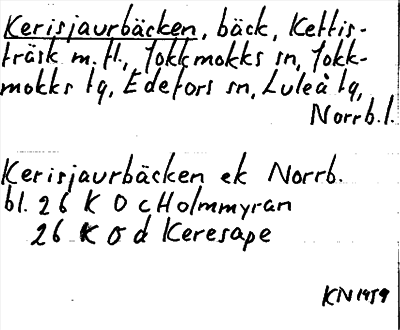 Kerisjaurbäcken, bäck, Kettis-
träsk m.fl., Jokkmokks sn, Jokk-
mokks tg, Edefors sn, Luleå tg,
Norrb.l.
Kerisjaurbäcken ek Norrb.
bl. 26 K 0 c Holmmyran
26 K 0 d Keresape
KN 1959